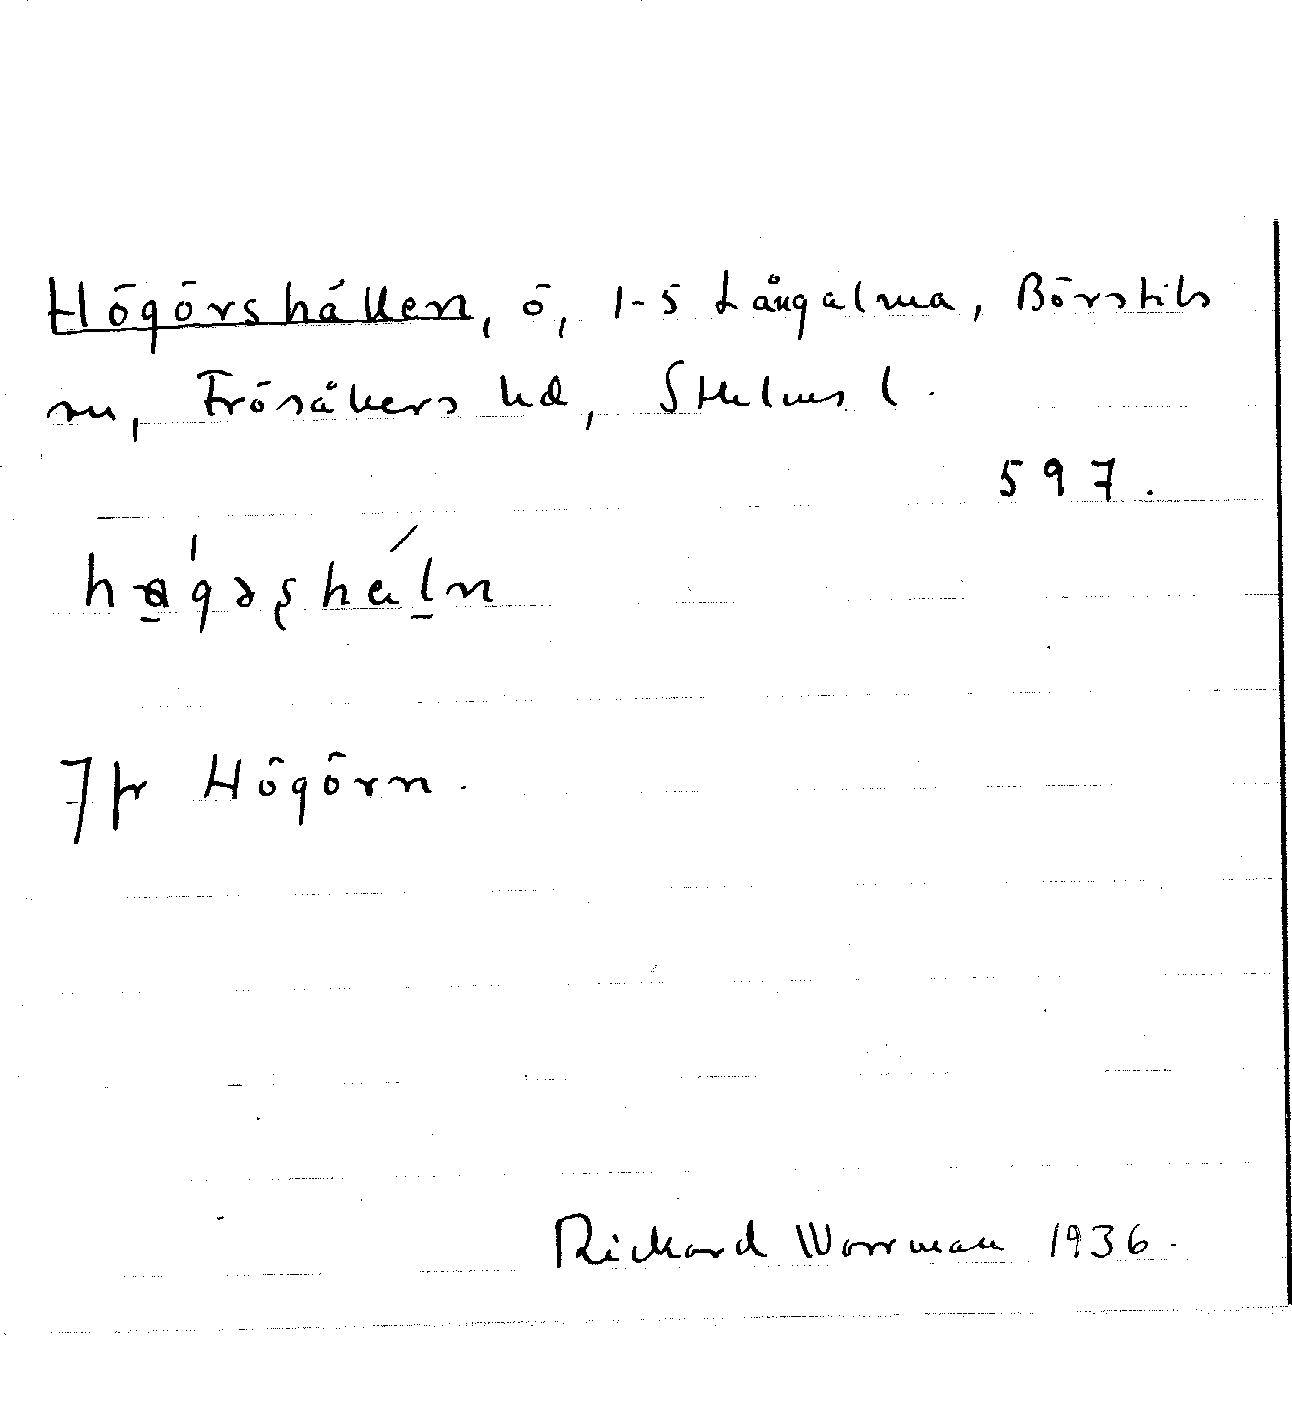 Högörshällen, ö, 1-5 Långalma, Börstils
sn, Frösåkers hd, Sthlms l.
597.
Jfr Högörn.
Rickard Worrman 1936.